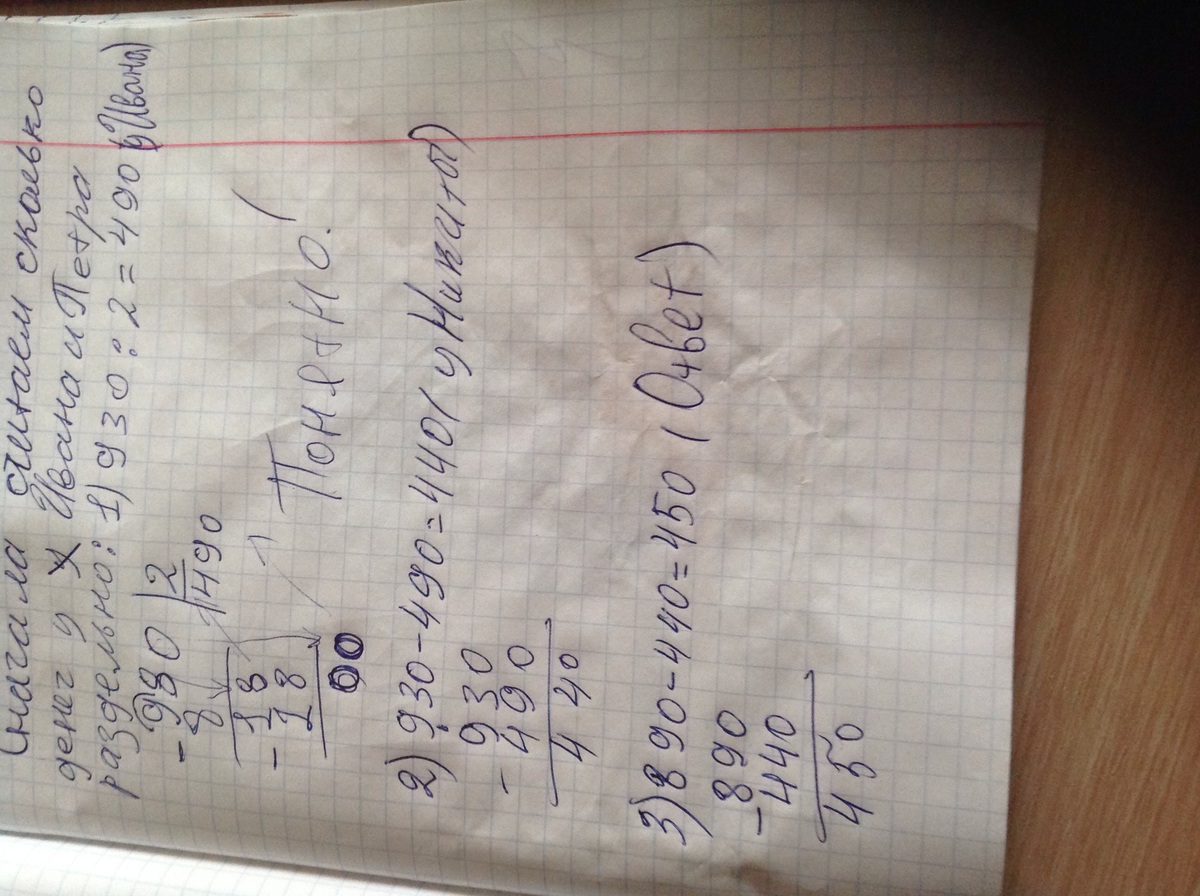 Сначала считаем сколько
денег у Ивана и Петра
раздельно: 1) 930 : 2 = 490 (у Ивана)
- 980 | 2
8 490
- 18
18
00
Понятно!
2) 930 - 490 = 440 ( у Никиты)
- 930
490
440
3) 890 - 440 = 450 ( Ответ)
- 890
440
450